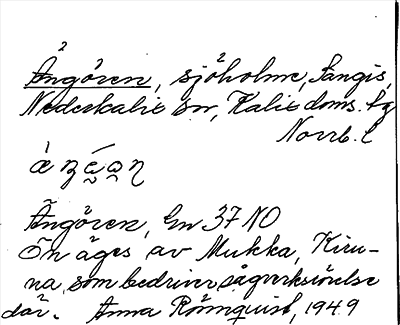 Ängören, sjöholme, Sangis,
Nederkalix sn, Kalix doms. lg
Norrb. l
Ängören, En 37 NO
Ön äges av Mukka, Kiru-
na, som bedriver sågverksrörelse
där. Anna Rönnquist, 1949